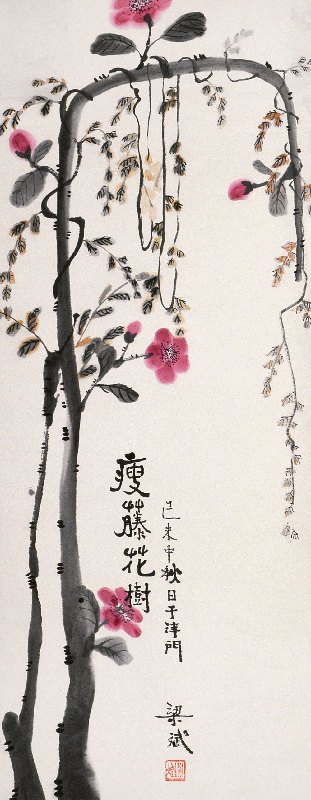 瘦藤花樹
己未中秋日于津門
梁斌